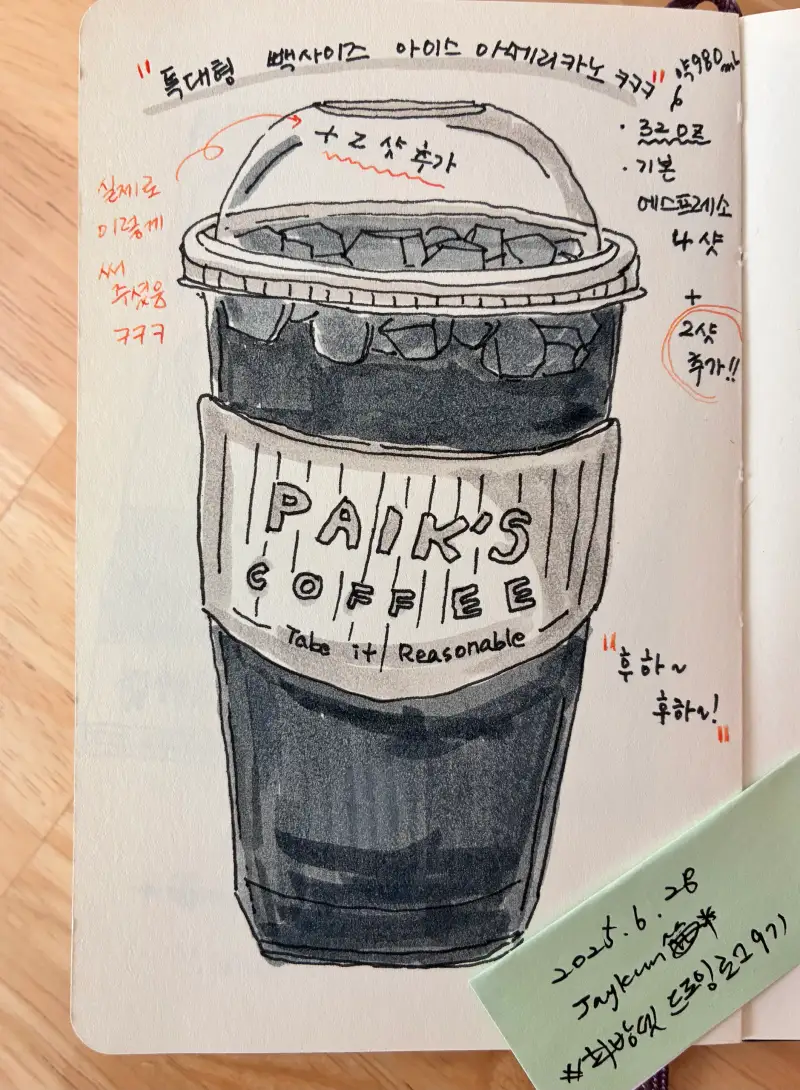 "특대형 빽사이즈 아이스 아메리카노 ㅋㅋㅋ"
약980ml
+ 2 샷 추가
실제로
이렇게
써
주셨음
ㅋㅋㅋ
· 32oz
· 기본
에스프레소
4 샷
+
2샷
추가!!
PAIK'S
COFFEE
Take it Reasonable
"후하~
후하~!"
2025.6.28
Jaykun
드로잉로그 9기